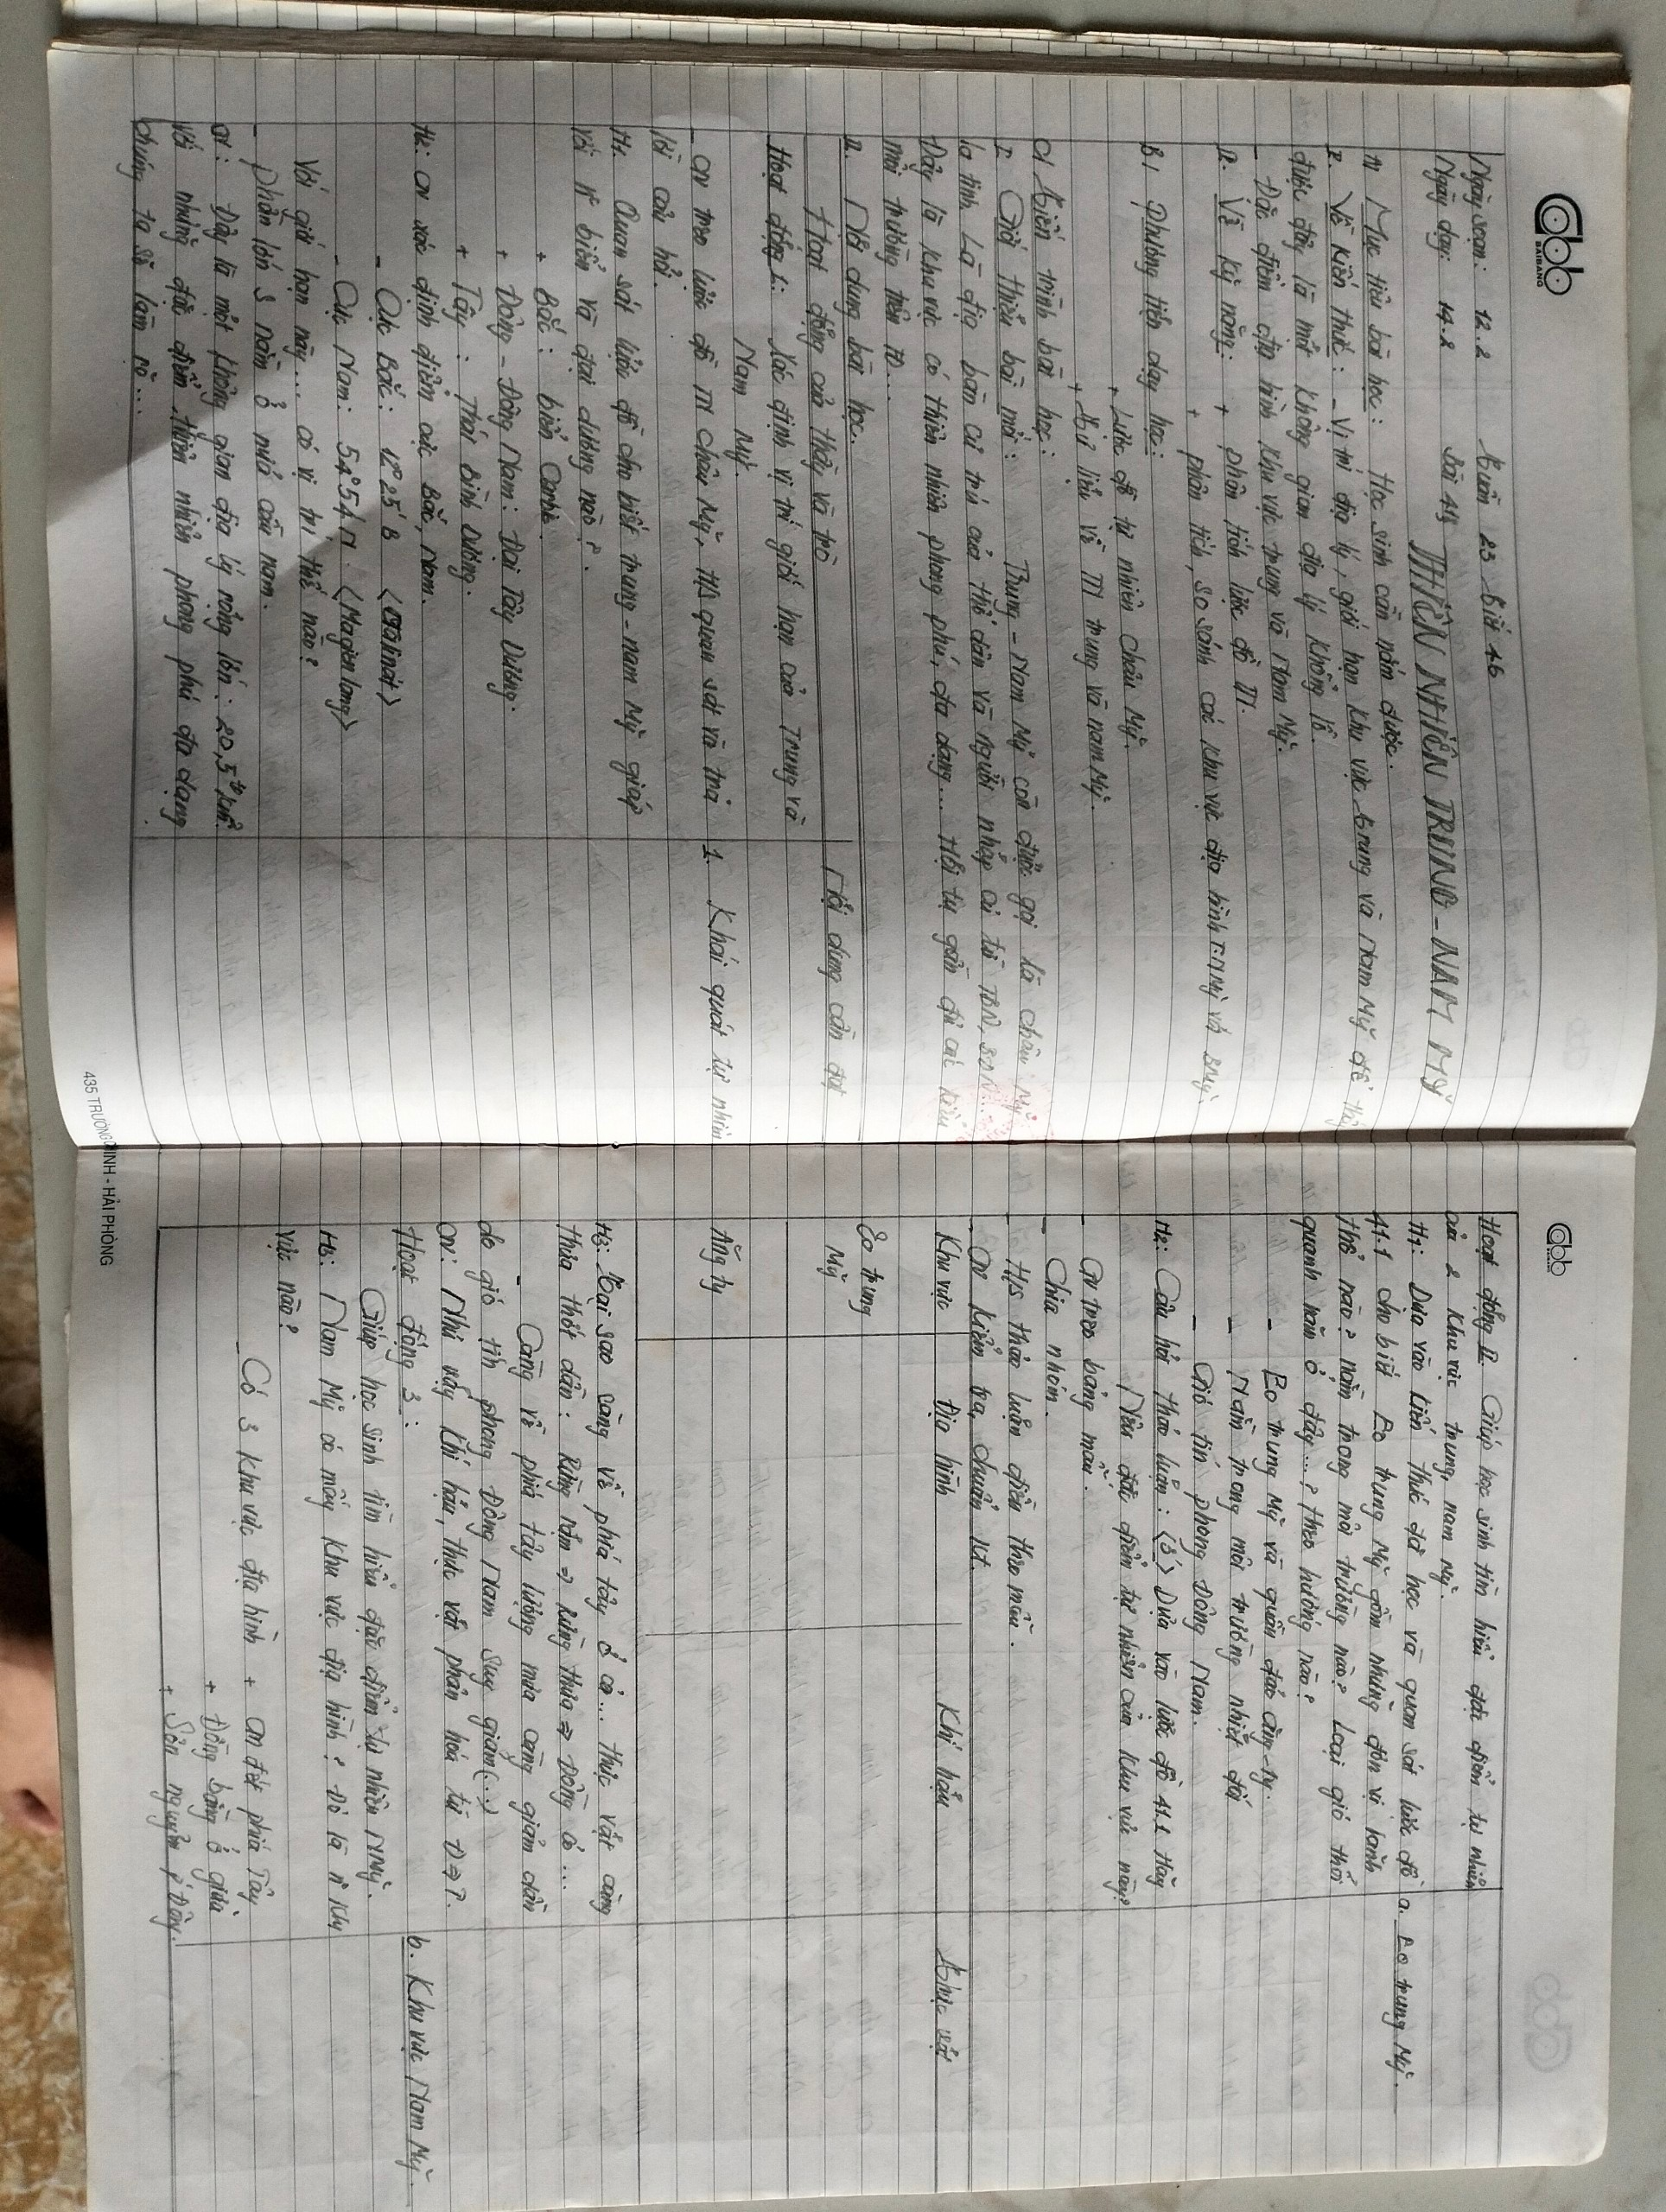 abb
BAIBANG
Ngày soạn: 12.2 Tuần 23 Tiết 45
Ngày dạy: 14.2 Bài 41
THIÊN NHIÊN TRUNG - NAM MỸ
A, Mục tiêu bài học: Học sinh cần nắm được.
I. Về kiến thức: - Vị trí địa lý, giới hạn khu vực trung và Nam Mỹ để thấy
được đây là một không gian địa lý khổng lồ.
- Đặc điểm địa hình khu vực trung và Nam Mỹ.
II. Về kỹ năng: + phân tích lược đồ TN.
+ phân tích, so sánh các khu vực địa hình T.NMỹ và BMỹ.
B, phương tiện dạy học:
+ Lược đồ tự nhiên Châu Mỹ.
+ Tư liệu về TN trung và nam Mỹ.
C, Tiến trình bài học:
I. Giới thiệu bài mới: Trung - Nam Mỹ còn được gọi là châu Mỹ
la tinh. Là địa bàn cư trú của thổ dân và người nhập cư từ TBN, BĐN...
Đây là khu vực có thiên nhiên phong phú, đa dạng... Hội tụ gần đủ các kiểu
môi trường trên TĐ...
II. Nội dung bài học:
Hoạt động của thầy và trò
Nội dung cần đạt
Hoạt động 1: Xác định vị trí giới hạn của Trung và
Nam Mỹ.
- GV treo lược đồ TN châu Mỹ, HS quan sát và trả
lời câu hỏi.
1. Khái quát tự nhiên
H1. Quan sát lược đồ cho biết trung - nam Mỹ giáp
với n biển và đại dương nào?
+ Bắc: biển Caribê.
+ Đông - Đông Nam: Đại Tây Dương.
+ Tây: Thái Bình Dương.
H2: GV xác định điểm cực Bắc, Nam.
- Cực Bắc: 12°25'B
- Cực Nam: 53°54'N. (Magienlang)
Với giới hạn này... có vị trí thế nào?
- Phần lớn S nằm ở nửa cầu nam.
GV: Đây là một không gian địa lý rộng lớn: 20,5tr km².
Với những đặc điểm thiên nhiên phong phú đa dạng
chúng ta sẽ làm rõ...
435 TRƯỜNG CHINH - HẢI PHÒNG
abb
Hoạt động 2. Giúp học sinh tìm hiểu đặc điểm tự nhiên
của 2 khu vực trung, nam Mỹ.
H1: Dựa vào kiến thức đã học và quan sát lược đồ
a. Eo trung Mỹ.
41.1 cho biết Eo trung Mỹ gồm những đơn vị lãnh
thổ nào? nằm trong môi trường nào? Loại gió thổi
quanh năm ở đây...? theo hướng nào?
- Eo trung Mỹ và quần đảo ăng-ty.
- Nằm trong môi trường nhiệt đới
- Gió tín phong Đông Nam.
H2: Câu hỏi thảo luận: (3') Dựa vào lược đồ 41.1 Hãy
Nêu đặc điểm tự nhiên của khu vực này?
- GV treo bảng mẫu.
- Chia nhóm.
- HS thảo luận điền theo mẫu.
- GV kiểm tra, chuẩn kt.
Khu vực Địa hình Khí hậu Thực vật
Eo trung
Mỹ
Ăng ty
H3: Tại sao càng về phía tây ở cả... thực vật càng
thưa thớt dần: Rừng rậm => Rừng thưa => Đồng cỏ...
- Càng về phía tây lượng mưa càng giảm dần
do gió tín phong Đông Nam suy giảm (...)
GV: Như vậy khí hậu, thực vật phân hóa từ Đ=>T.
Hoạt động 3:
b. Khu vực Nam Mỹ.
Giúp học sinh tìm hiểu đặc điểm tự nhiên NMỹ.
H3: Nam Mỹ có mấy khu vực địa hình? Đó là n khu
vực nào?
- Có 3 khu vực địa hình + an đét phía Tây
+ Đồng bằng ở giữa
+ Sơn nguyên p' Đông.